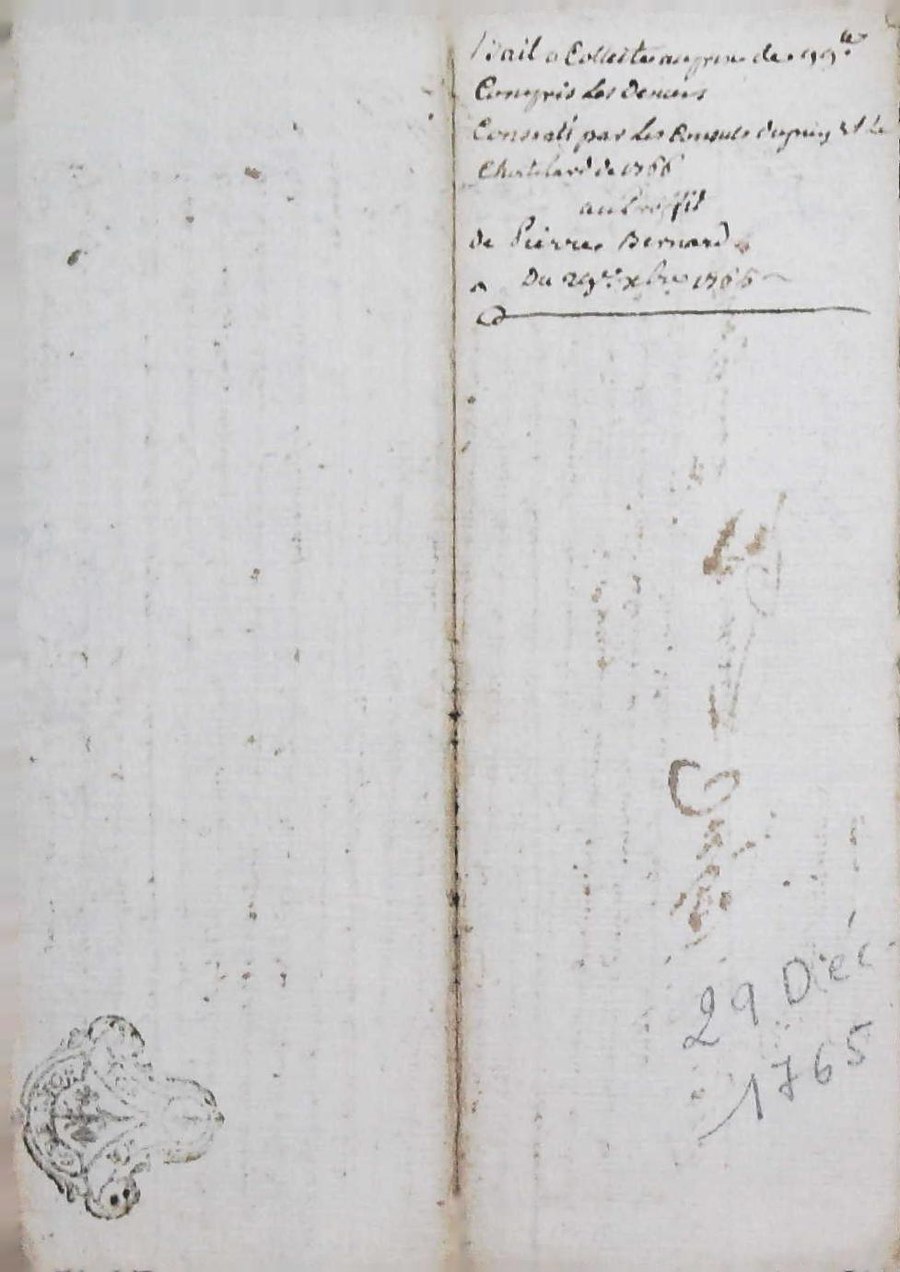 Bail a Collecte au prix de 99 ᵗᵗ
Compris Les deniers
Consenti par les Consuls dupuy Et le
Chatelard de 1766
au Proffit
de Pierre Bernard
Du 29ᵉ xbre 1765
29 Déc
1765